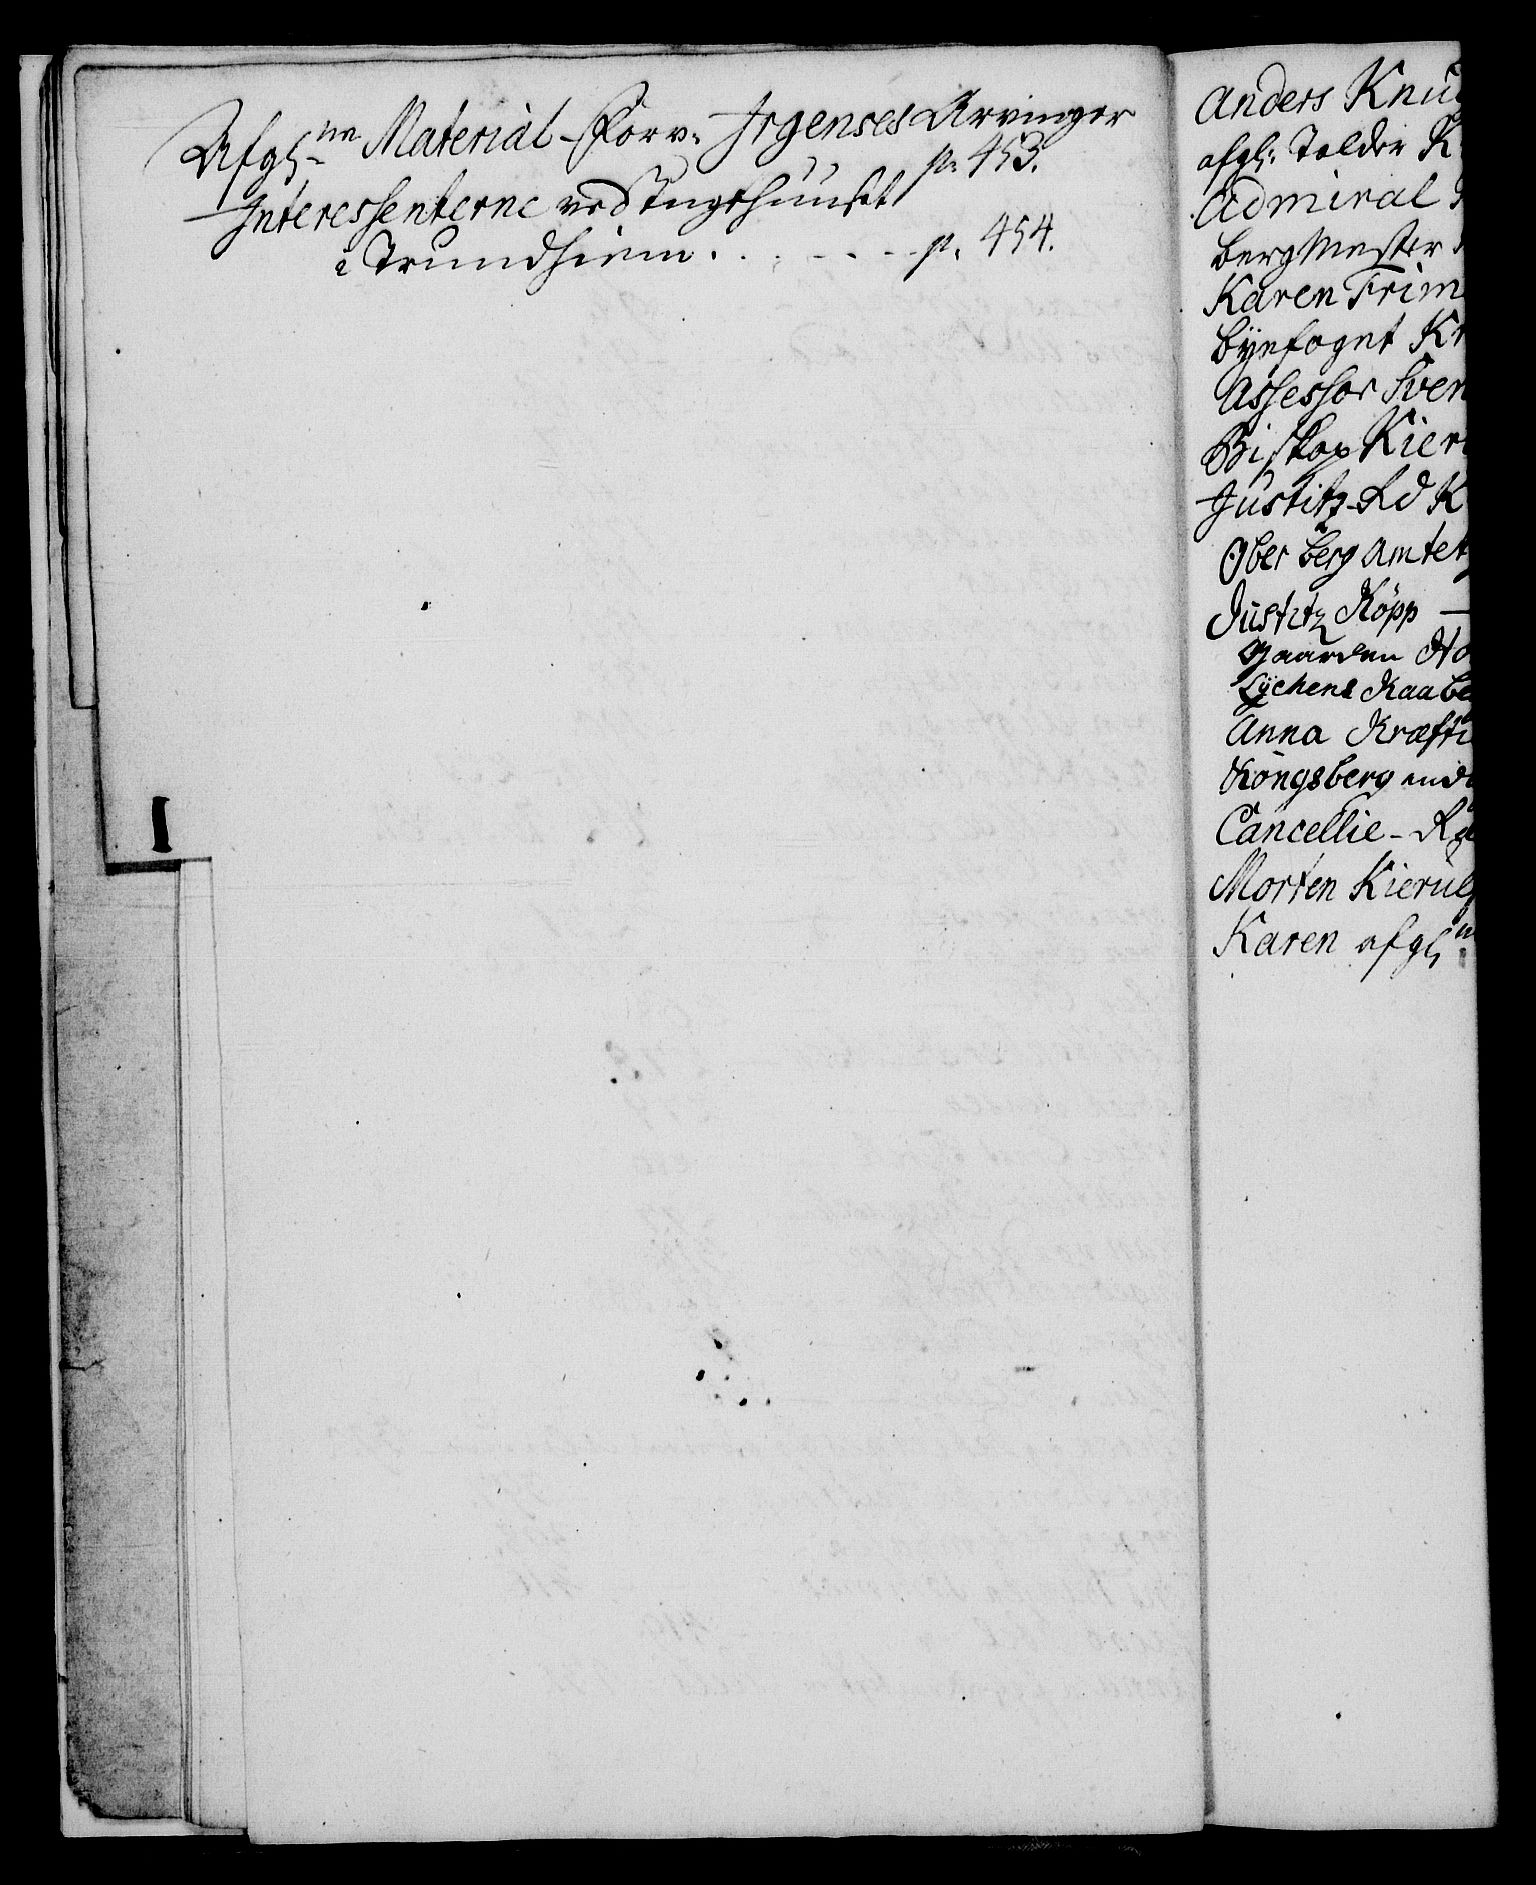 Afgl: ne Material-Forv: Jrgenses Arvinger
p. 453.
Interessenterne ved Tugthuuset
i Trundhiem . . . - - - p. 454.
I
Anders Knu
afgl: Tolder K
Admiral
Berg Mester
Karen Frim
Byefoget Kr
Assessor Sven
Biskop Kier
Justitz-Rd K
Ober Berg Amtet
Justitz Köpp —
Gaarden Ho
Lychens Kaabe
Anna Kræfti
Kongsberg
Cancellie-Ra
Morten Kierul
Karen afgl: n